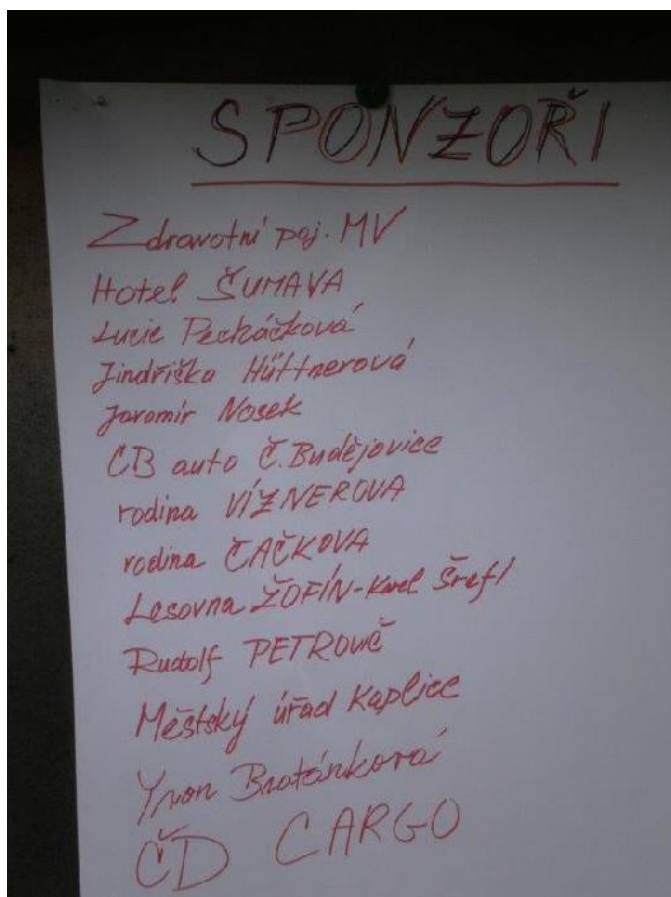 SPONZOŘI
Zdravotní poj. MV
Hotel ŠUMAVA
Lucie Pecháčková
Jindřiška Hüttnerová
Jaromír Nosek
ČB auto Č. Budějovice
rodina VÍZNEROVA
rodina ČAČKOVA
Lesovna ŽOFÍN - Karel Šrefl
Rudolf
Městský úřad Kaplice
Yvon
ČD CARGO